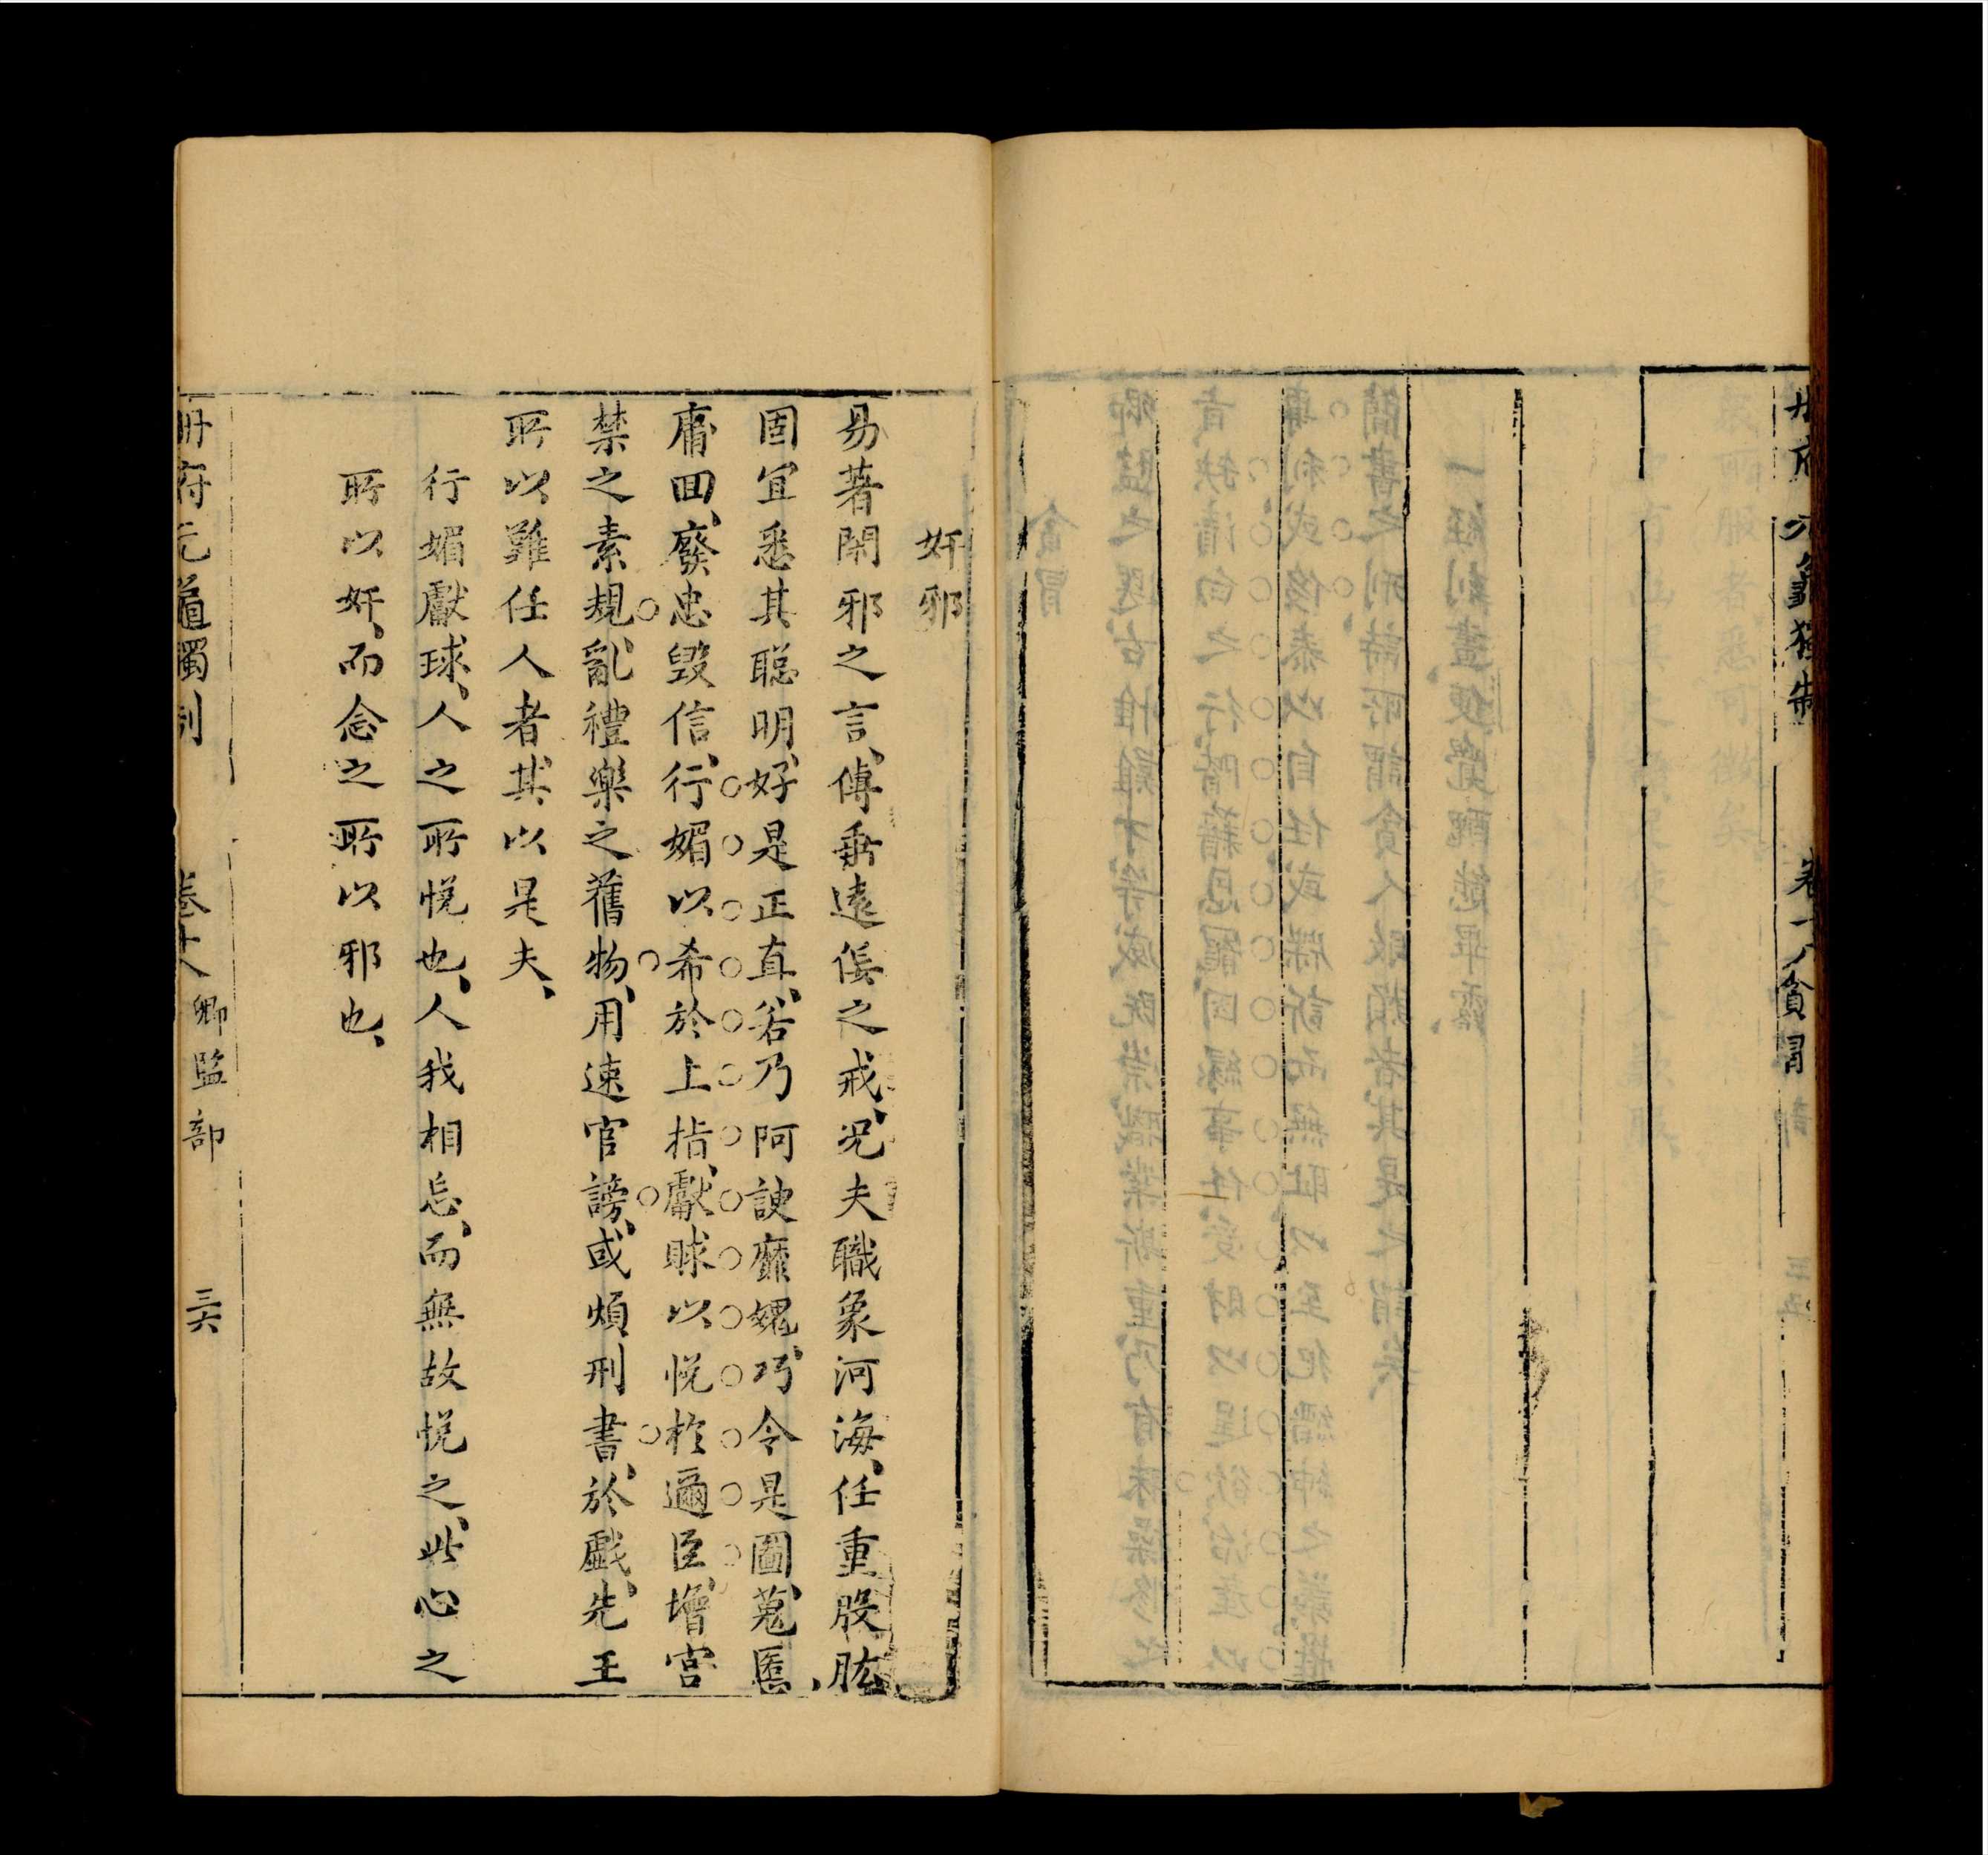 冊府元龜獨制 卷十八 貪冒
奸邪
易著閑邪之言、傳垂遠佞之戒、况夫職象河海、任重股肱、
固宜悉其聡明、好是正直、若乃阿諛靡媿、巧令是圖、蒐慝、
庸回、廢忠毁信、行媚以希於上指、獻賕以悅於邇臣、增宫
禁之素規、亂禮樂之舊物、用速官謗、或煩刑書、於戲、先王
所以難任人者、其以是夫、
行媚獻球、人之所悅也、人我相忘、而無故悅之、此心之
所以奸、而念之所以邪也、
冊府元龜獨制 卷十八 卿監部 三六